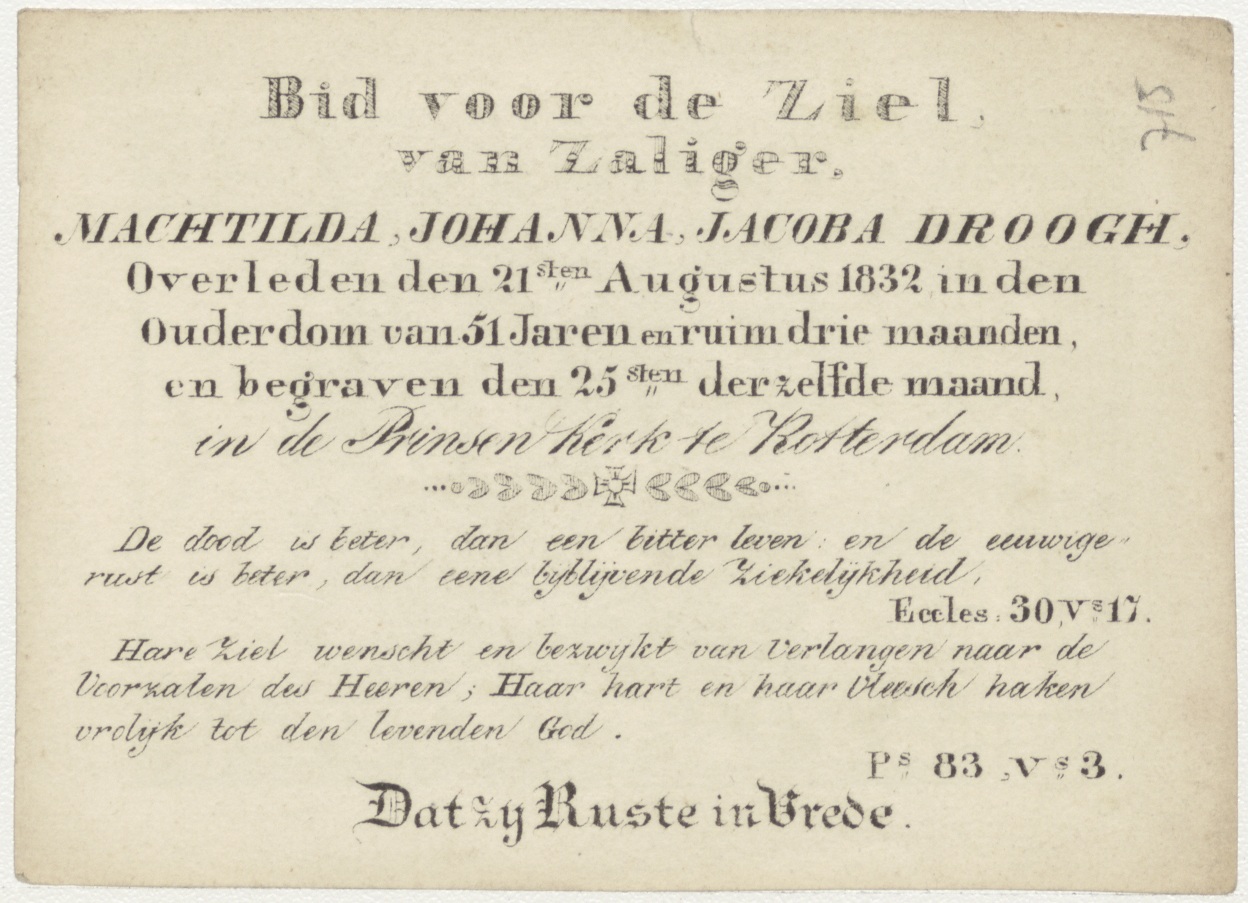 Bid voor de Ziel,
van Zaliger,
MACHTILDA, JOHANNA, JACOBA DROOGH,
Overleden den 21sten Augustus 1832 in den
Ouderdom van 51 Jaren en ruim drie maanden,
en begraven den 25sten derzelfde maand,
in de Prinsen Kerk te Rotterdam.
De dood is beter, dan een bitter leven: en de eeuwige
rust is beter, dan eene byblijvende Ziekelijkheid,
Eccles: 30, Vs 17.
Hare Ziel wenscht en bezwijkt van Verlangen naar de
Voorzalen des Heeren; Haar hart en haar Vleesch haken
vrolijk tot den levenden God.
Ps 83, Vs 3.
Dat zy Ruste in Vrede.
715